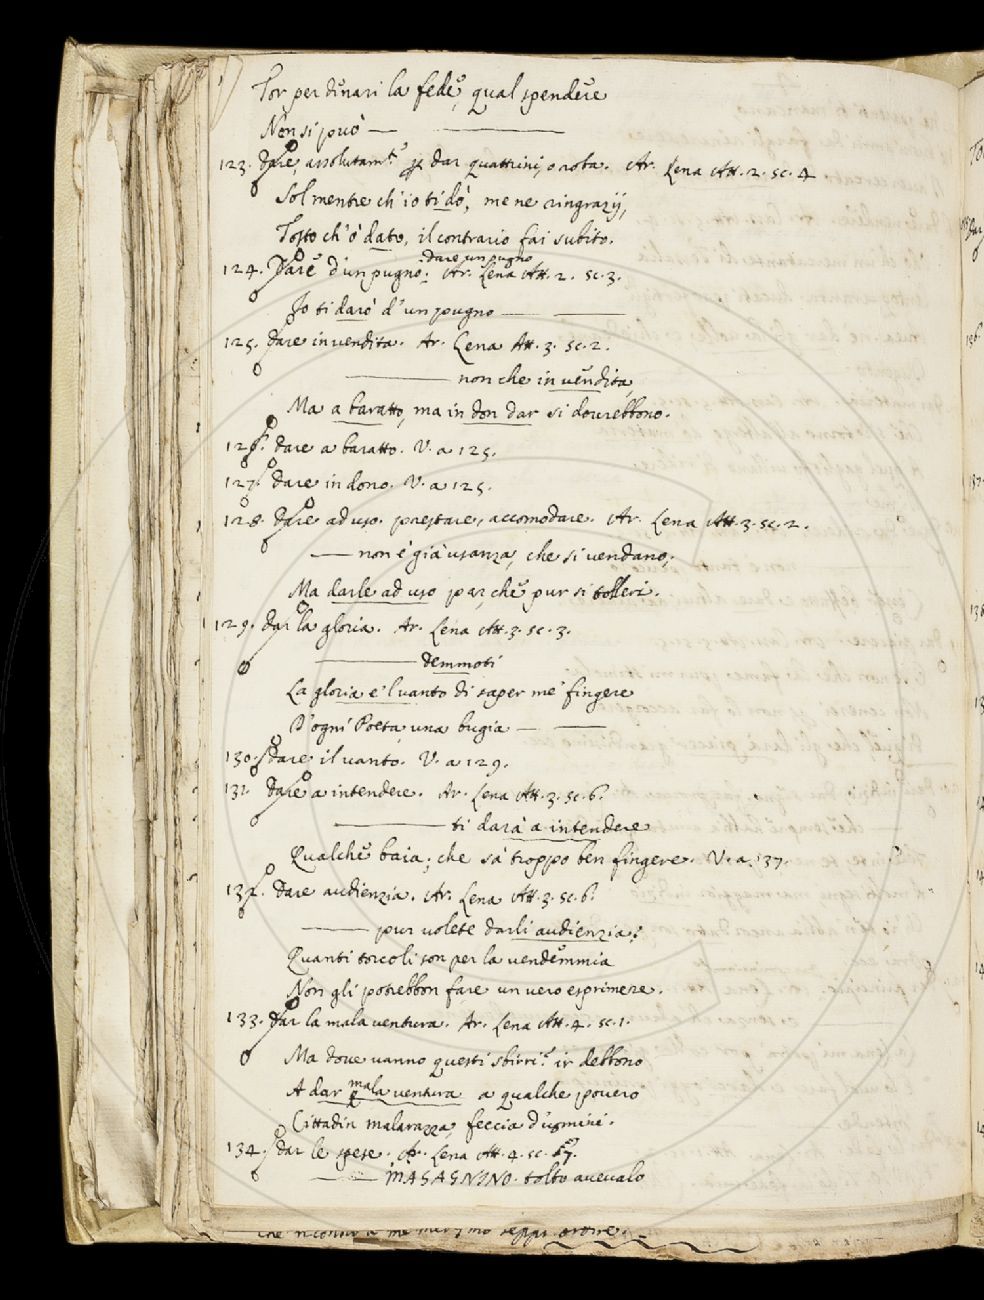 Tor per dinari la fede, qual spendere
Non si può — ———
123. Dare, assolutam.te p dar quattrini, o roba. Ar. Lena Att. 2. sc. 4
Sol mentre ch'io ti dò, me ne ringrazij,
Tosto ch'ò dato, il contrario fai subito.
124. Dare d'un pugno. dare un pugno Ar. Lena Att. 2. sc. 3.
Io ti darò d'un pugno — ———
125. Dare in vendita. Ar. Lena Att. 3. sc. 2.
——— non che in vendita,
Ma a baratto, ma in don dar si dourebbono.
126. dare a baratto. V. a 125.
127. dare in dono. V. a 125.
128. dare ad uso. prestare, accomodare. Ar. Lena Att. 3. sc. 2.
— non è già usanza, che si vendano,
Ma darle ad uso par, che pur si tolleri.
129. dar la gloria. Ar. Lena Att. 3. sc. 3.
——— demmoti
La gloria e 'l uanto di saper me' fingere
D'ogni Poeta una bugia — ———
130. dare il uanto. V. a 129.
131. dare a intendere. Ar. Lena Att. 3. sc. 6.
——— ti darà a intendere
Qualche baia; che sà troppo ben fingere. V. a 137.
132. dare audienzia. Ar. Lena Att. 3. sc. 6.
——— pur uolete darli audienzia?
Quanti torcoli son per la vendemmia
Non gli potrebbon fare un uero esprimere.
133. dar la mala ventura. Ar. Lena Att. 4. sc. 1.
Ma doue uanno questi sbirri? ir debbono
A dar mala ventura a qualche pouero
Cittadin malarazza, feccia d'uomini.
134. dar le spese. Ar. Lena Att. 4. sc. 7.
——— MASAGNINO. tolto aueualo